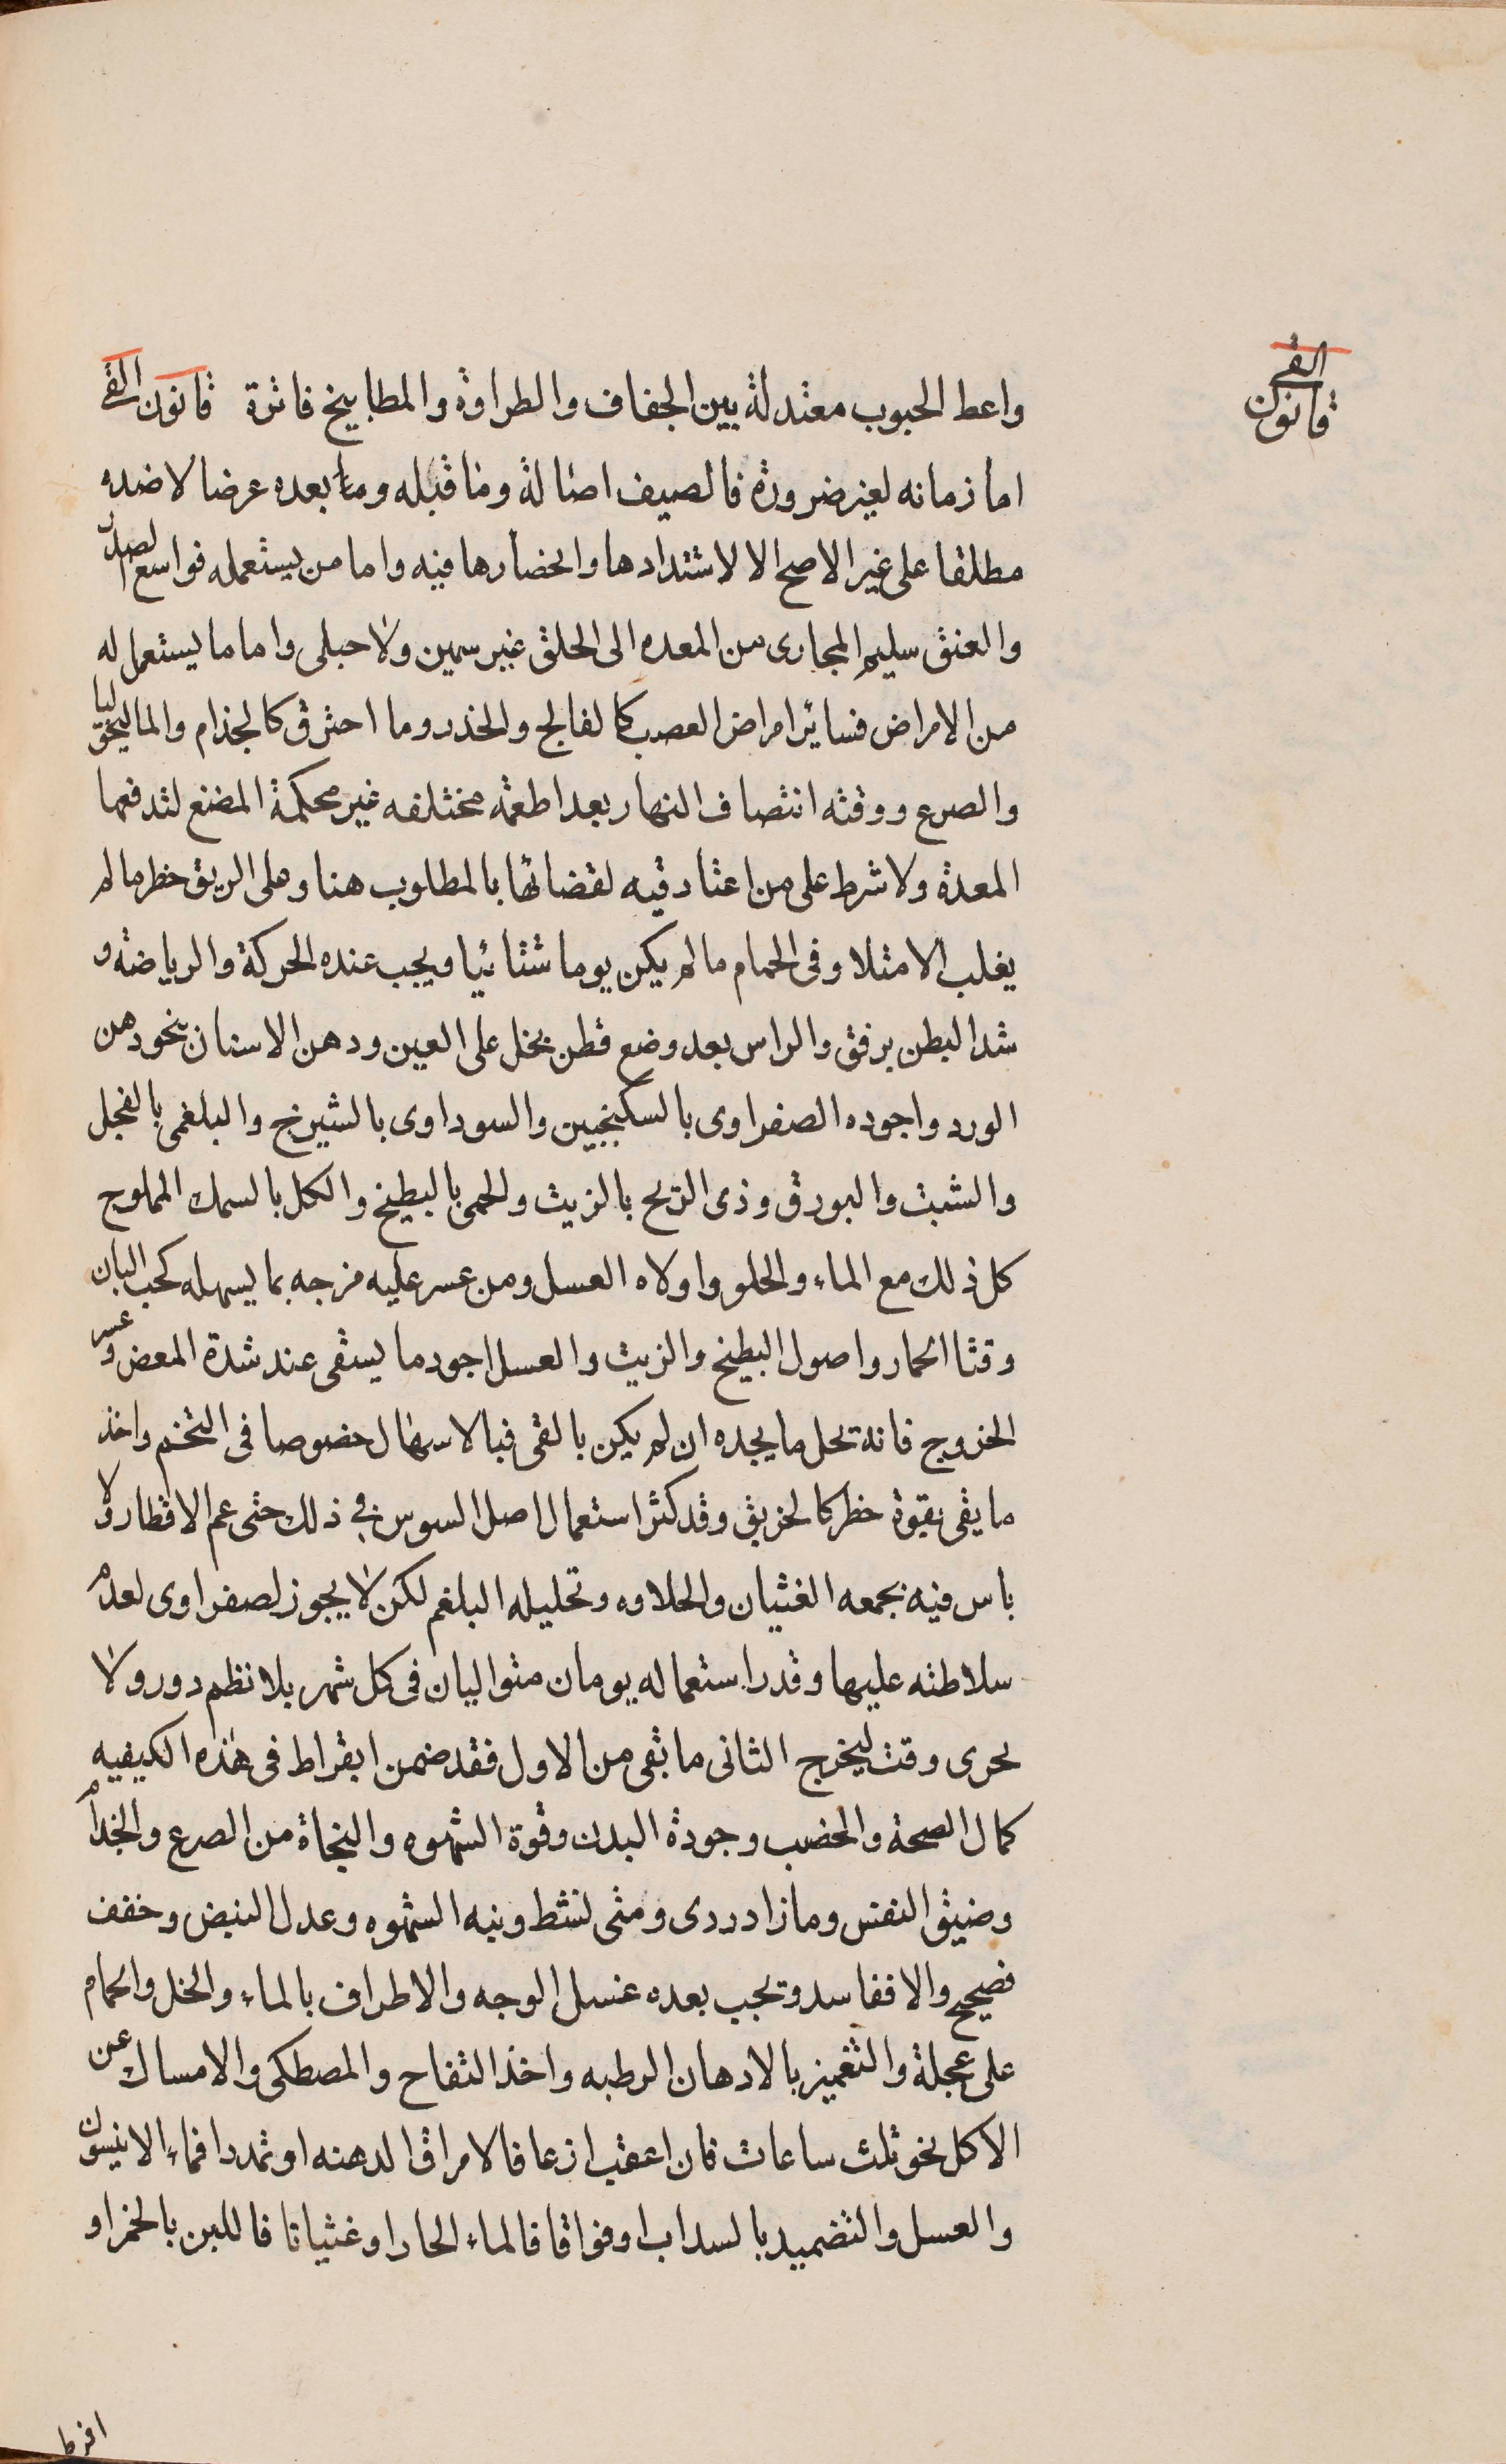 القى
قانون
واعط الحبوب معتدلة بين الجفاف والطراوة والمطابيخ فاترة قانون القى
اما زمانه لغير ضرورة فالصيف اصالة وما قبله وما بعده عرضا لا ضده
مطلقا على غير الاصح الا لاشتدادها وانحصارها فيه واما من يستعمله فواسع الصدر
والعنق سليم المجارى من المعده الى الحلق غير سمين ولا حبلى واما ما يستعمل له
من الامراض فسائر امراض العصب كالفالج والخدر وما احترق كالجذام والماليخوليا
والصرع ووقته انتصاف النهار بعد اطعمة مختلفه غير محكمة المضغ لتدفعها
المعدة ولا شرط على من اعتاد قيه لقضائها بالمطلوب هنا وعلى الريق خطر ما لم
يغلب الامتلا وفى الحمام ما لم يكن يوما شتائيا ويجب عنده الحركة والرياضة و
شد البطن برفق والراس بعد وضع قطن بخل على العين ودهن الاسنان بنحو دهن
الورد واجوده الصفراوى بالسكنجبين والسوداوى بالشيرج والبلغمى بالفجل
والشبت والبورق وذى الريح بالزيت والحمى بالبطيخ والكل بالسمك المملوح
كل ذلك مع الماء والحلو واولاه العسل ومن عسر عليه مزجه بما يسهله كحب البان
وقثا الحمار واصول البطيخ والزيت والعسل اجود ما يسقى عند شدة المغص وعسر
الخروج فانه يحل ما يجده ان لم يكن بالقى فبالاسهال خصوصا فى التخم واخذ
ما يقى بقوة خطر كالخربق وقد كثر استعمال اصل السوس فى ذلك حتى عم الاقطار ولا
باس فيه بجمعه الغثيان والحلاوه وتحليله البلغم لكن لا يجوز لصفراوى لعدم
سلاطته عليها وقدر استعماله يومان متواليان فى كل شهر بلا نظم دور ولا
تحرى وقت ليخرج الثانى ما بقى من الاول فقد ضمن ابقراط فى هذه الكيفيه
كمال الصحة والخصب وجودة البدن وقوة الشهوه والنجاة من الصرع والجذام
وضيق النفس وما زاد ردى ومتى نشط ونبه الشهوه وعدل النبض وخفف
فصحيح والا ففاسد ويجب بعده غسل الوجه والاطراف بالماء والخل والحمام
على عجلة والتغميز بالادهان الرطبه واخذ التفاح والمصطكى والامساك عن
الاكل نحو ثلث ساعات فان اعقب لذعا فالامراق الدهنه او تمددا فماء الانيسون
والعسل والتضميد بالسداب او فواقا فالماء الحار او غثيانا فاللبن بالخمر او
افرط